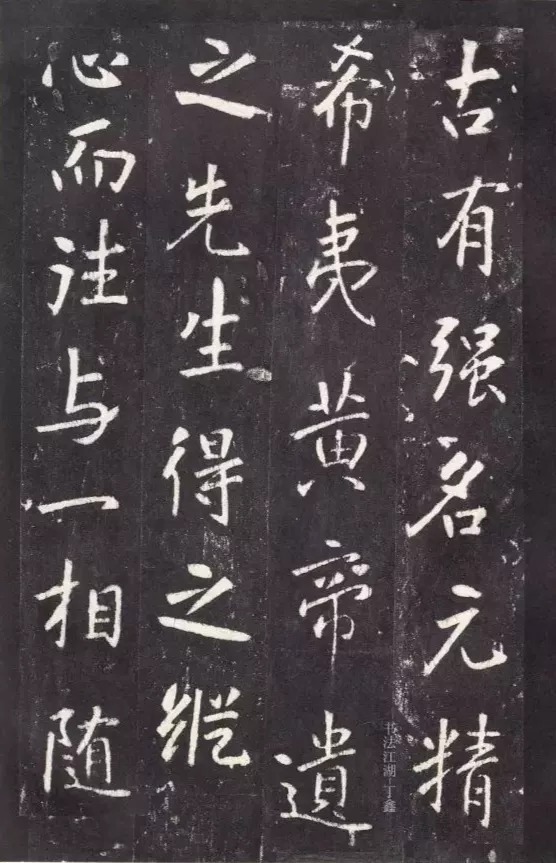 古有强名元精
希夷黄帝遺
之先生得之縱
心而往与一相随
书法江湖丁鑫